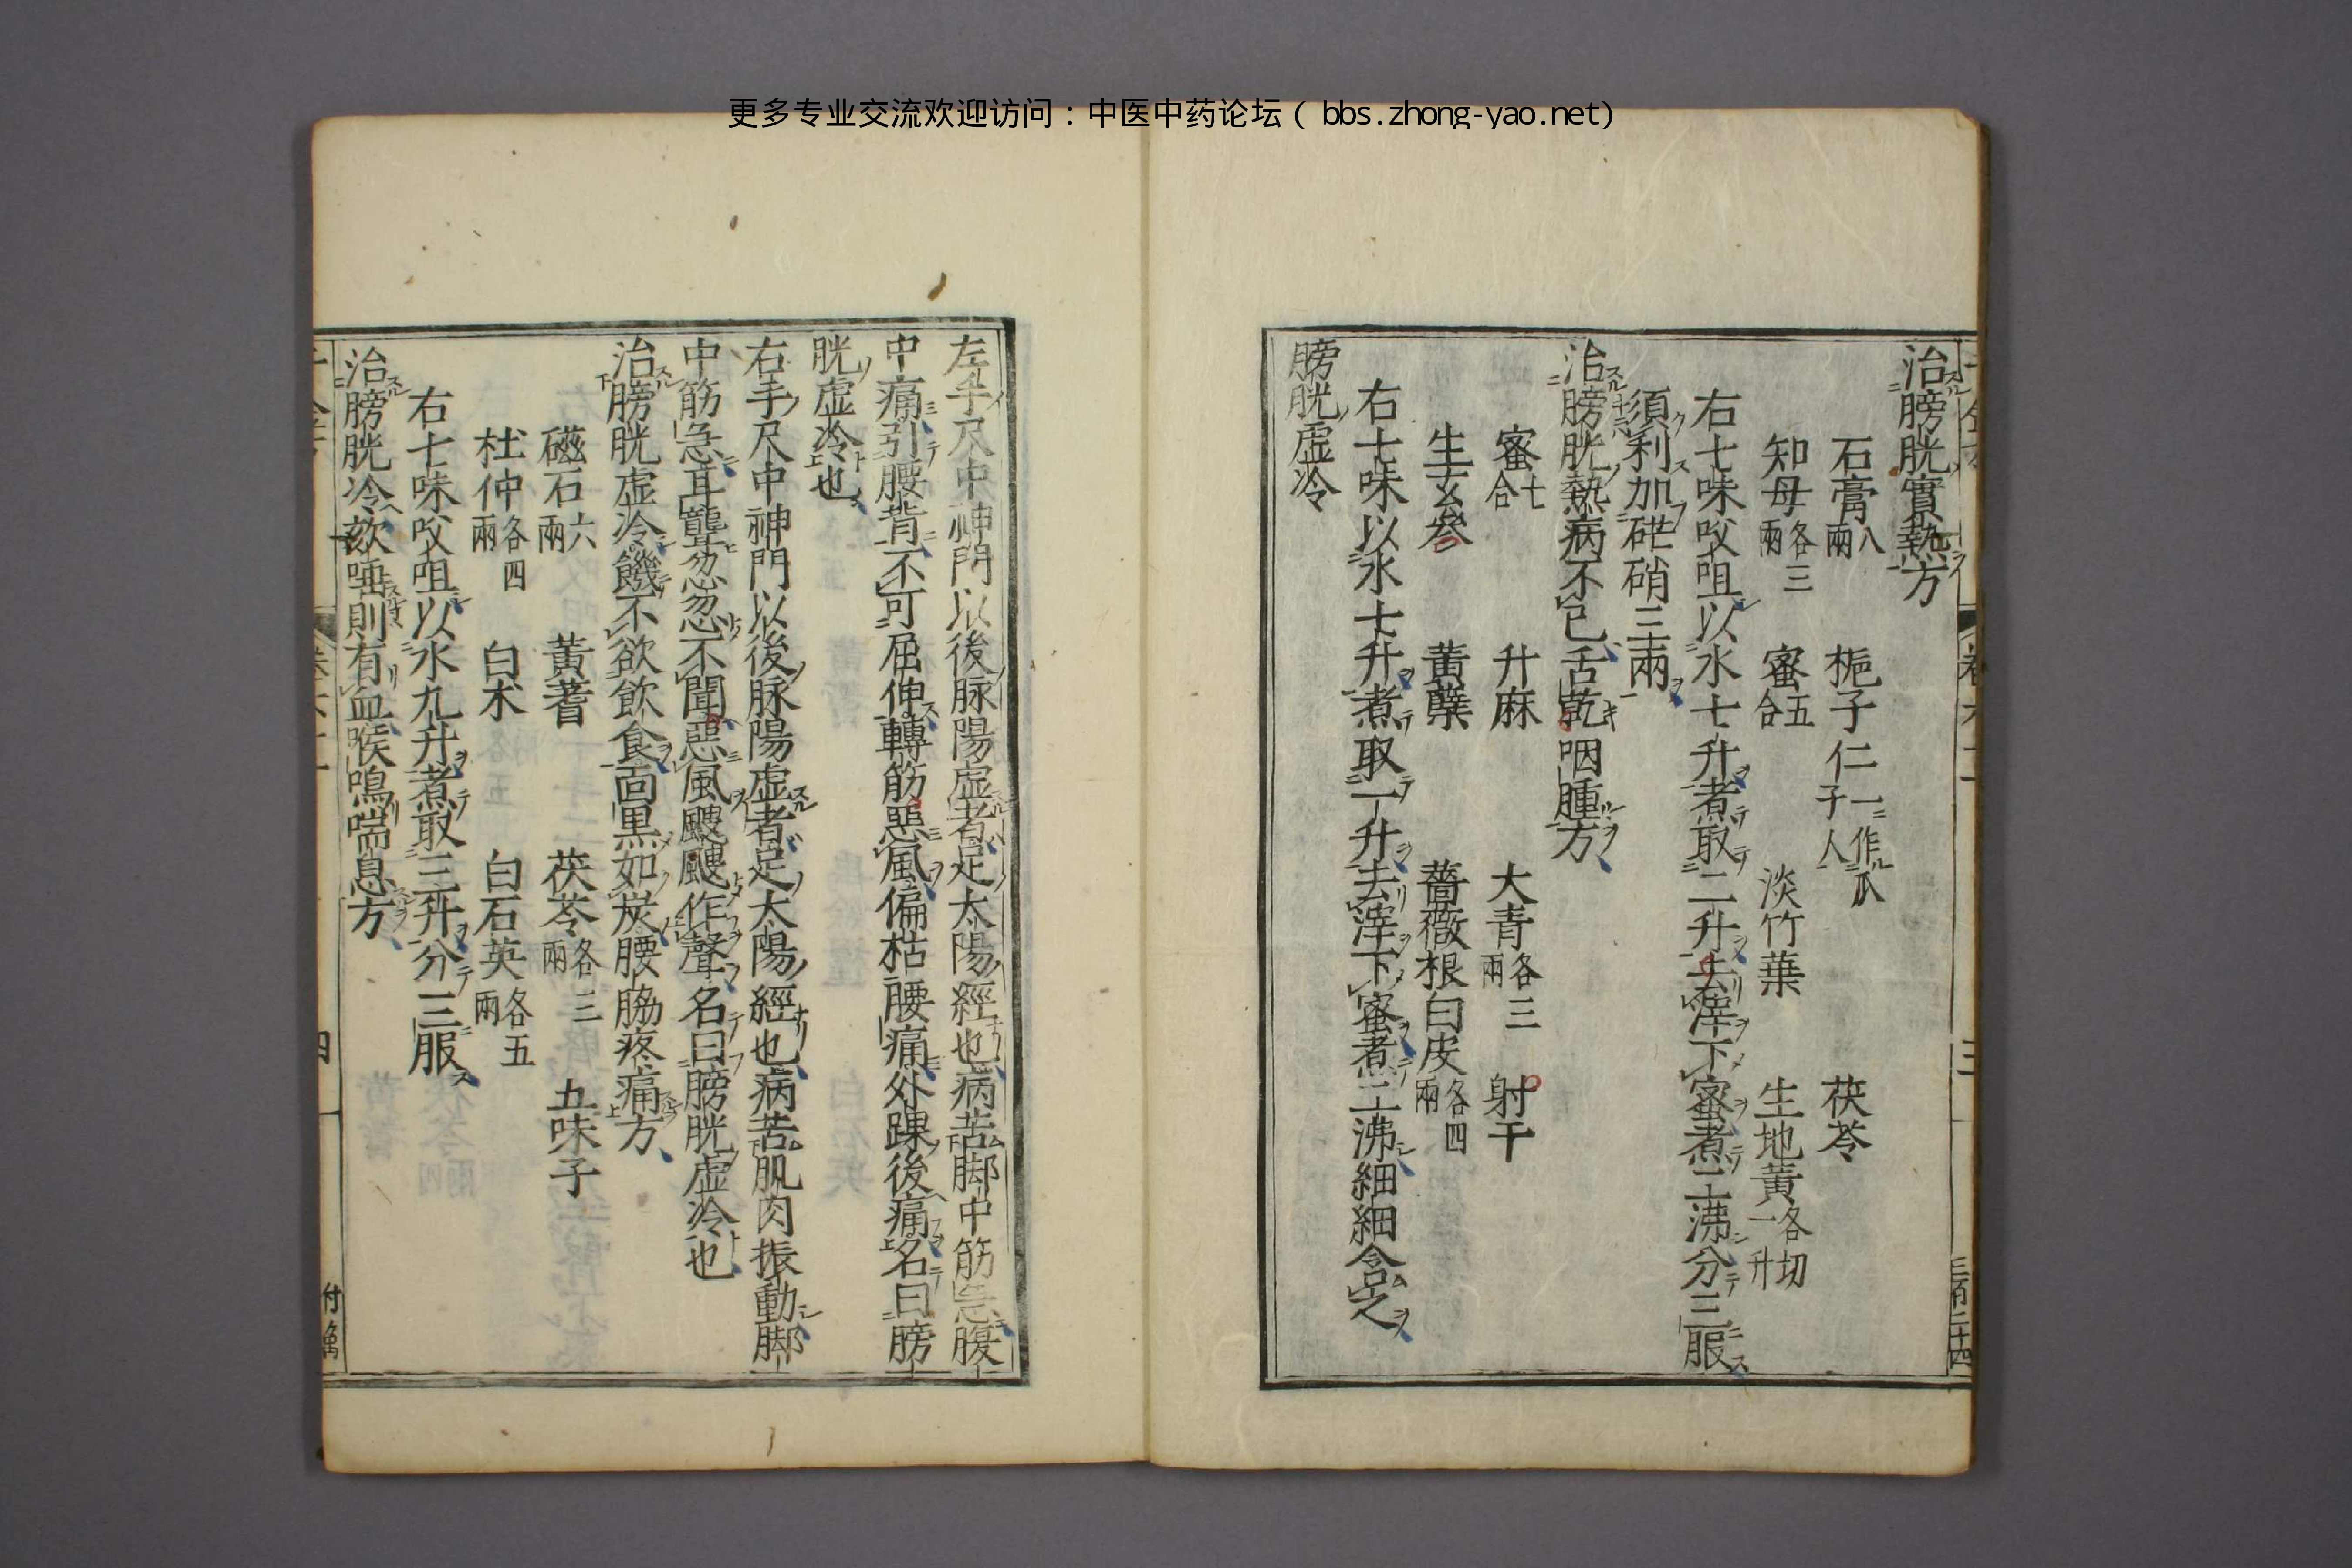 更多专业交流欢迎访问：中医中药论坛（bbs.zhong-yao.net）
治膀胱實熱方
石膏八兩 梔子仁一作瓜子人 茯苓
知母各三兩 蜜五合 淡竹葉 生地黃各切一升
右七味㕮咀以水七升煮取二升去滓下蜜煮二沸分三服
須利加芒硝三兩
治膀胱熱病不已舌乾咽腫方
蜜七合 升麻 大青各三兩 射干
生玄參 黃蘗 薔薇根白皮各四兩
右七味以水七升煮取一升去滓下蜜煮三沸細細含之
膀胱虛冷
三百二十四
左手尺中神門以後脉陽虛者足太陽經也病苦脚中筋急腹
中痛引腰背不可屈伸轉筋惡風偏枯腰痛外踝後痛名曰膀
胱虛冷也
右手尺中神門以後脉陽虛者足太陽經也病苦肌肉振動脚
中筋急耳聾忽忽不聞惡風颼颼作聲名曰膀胱虛冷也
治膀胱虛冷饑不欲飲食面黑如炭腰脇疼痛方
磁石六兩 黃蓍 茯苓各三兩 五味子
杜仲各四兩 白朮 白石英各五兩
右七味㕮咀以水九升煮取三升分三服
治膀胱冷欬唾則有血喉鳴喘息方